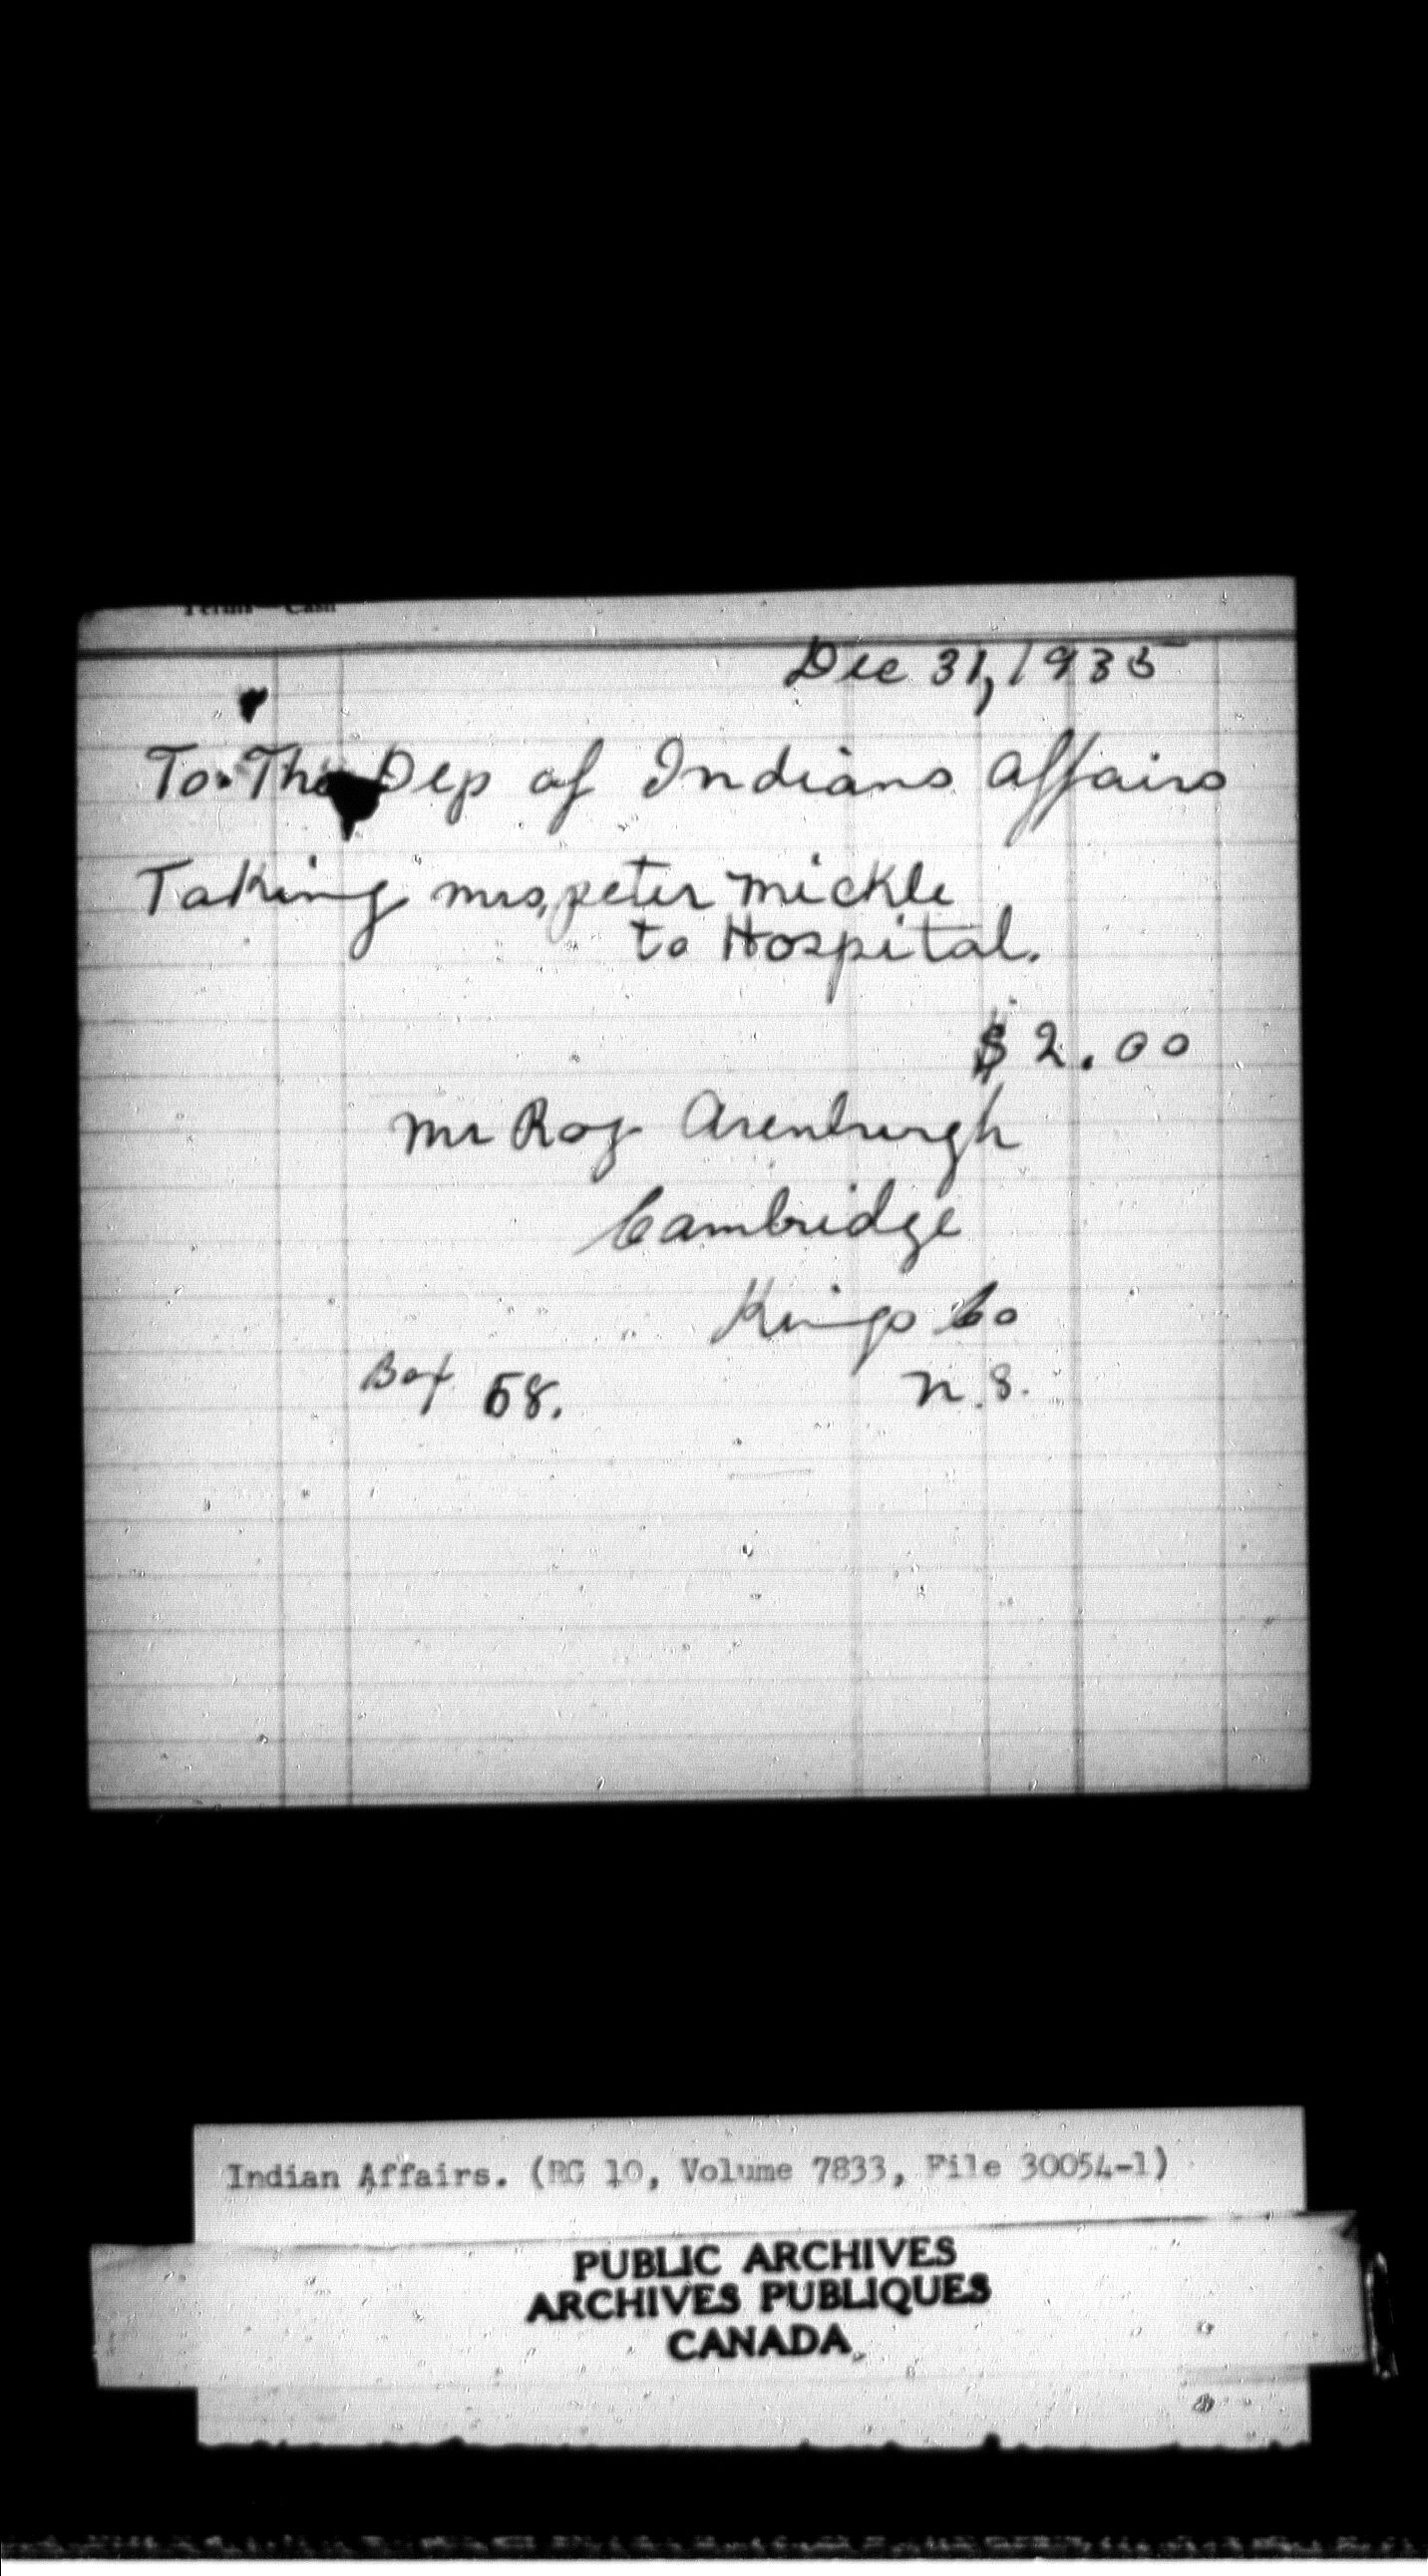 Terms — Cash
Dec 31, 1935
To. The Dep of Indians Affairs
Taking mrs, peter mickle
to Hospital.
$ 2.00
Mr Roy Arenburgh
Cambridge
Kings Co
Box 58. N.S.
Indian Affairs. (RG 10, Volume 7833, File 30054-1)
PUBLIC ARCHIVES
ARCHIVES PUBLIQUES
CANADA